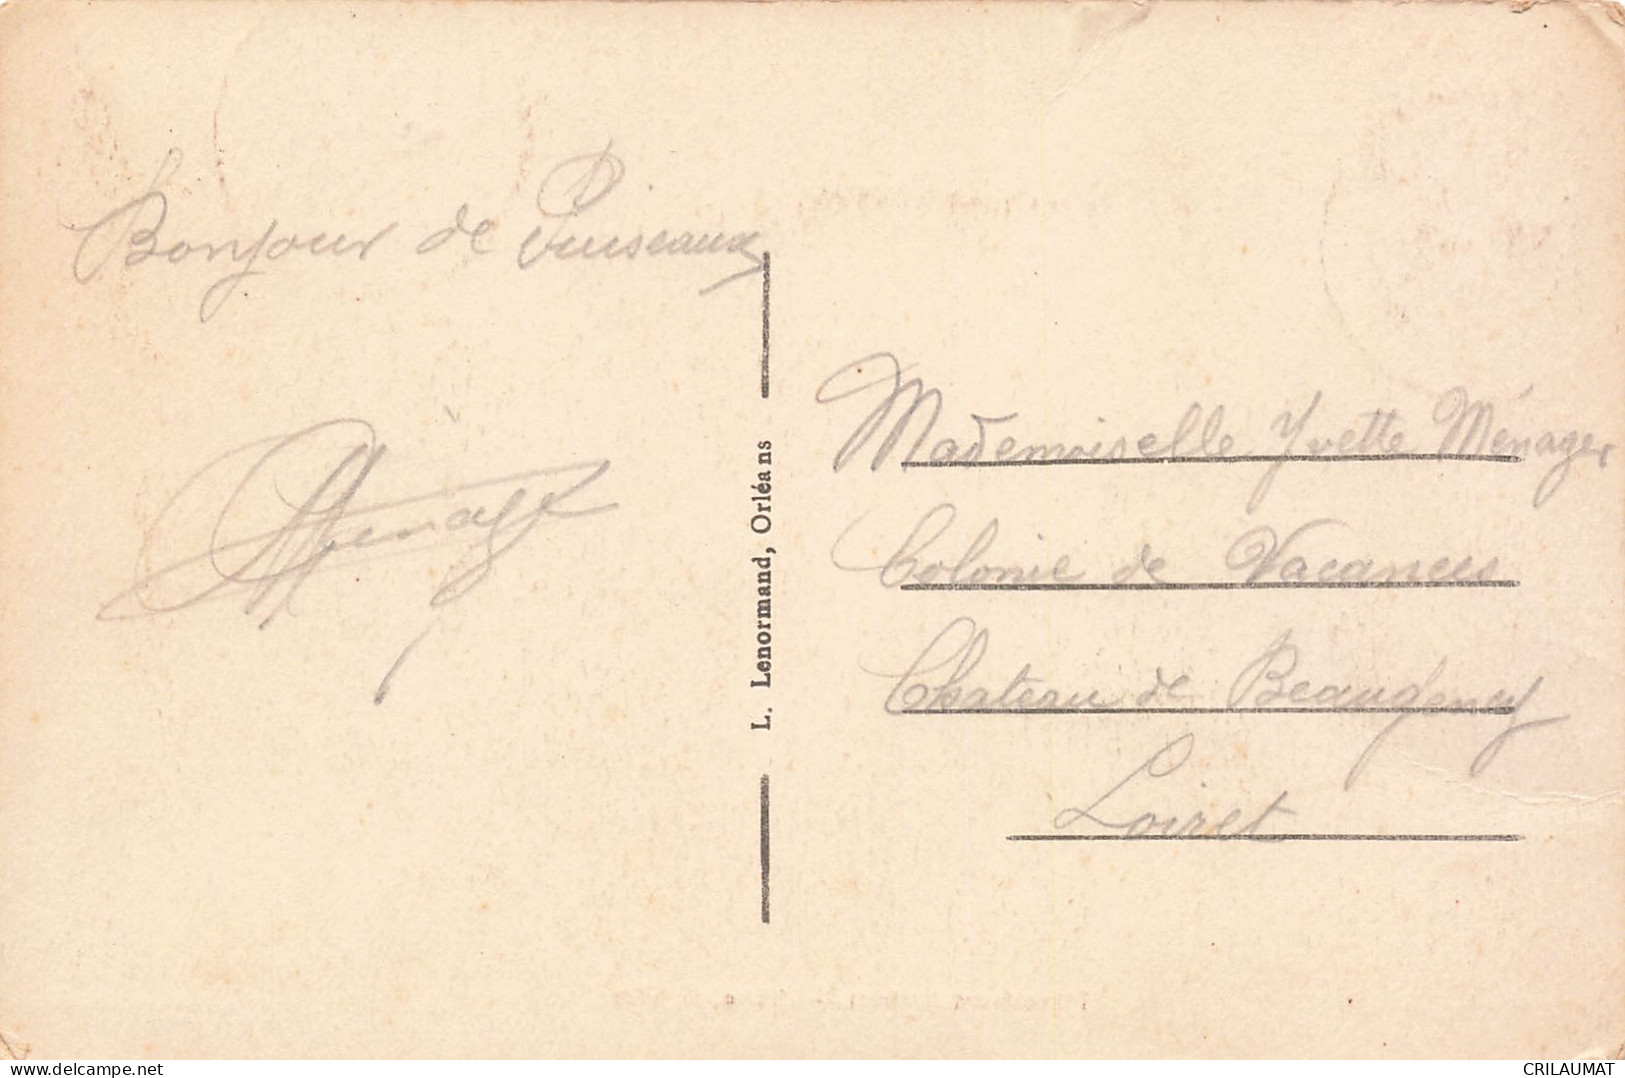 Bonjour de Puiseaux
Ménager
L. Lenormand, Orléans
Mademoiselle Yvette Ménager
Colonie de Vacances
Chateau de Beaugency
Loiret
www.delcampe.net
CRILAUMAT